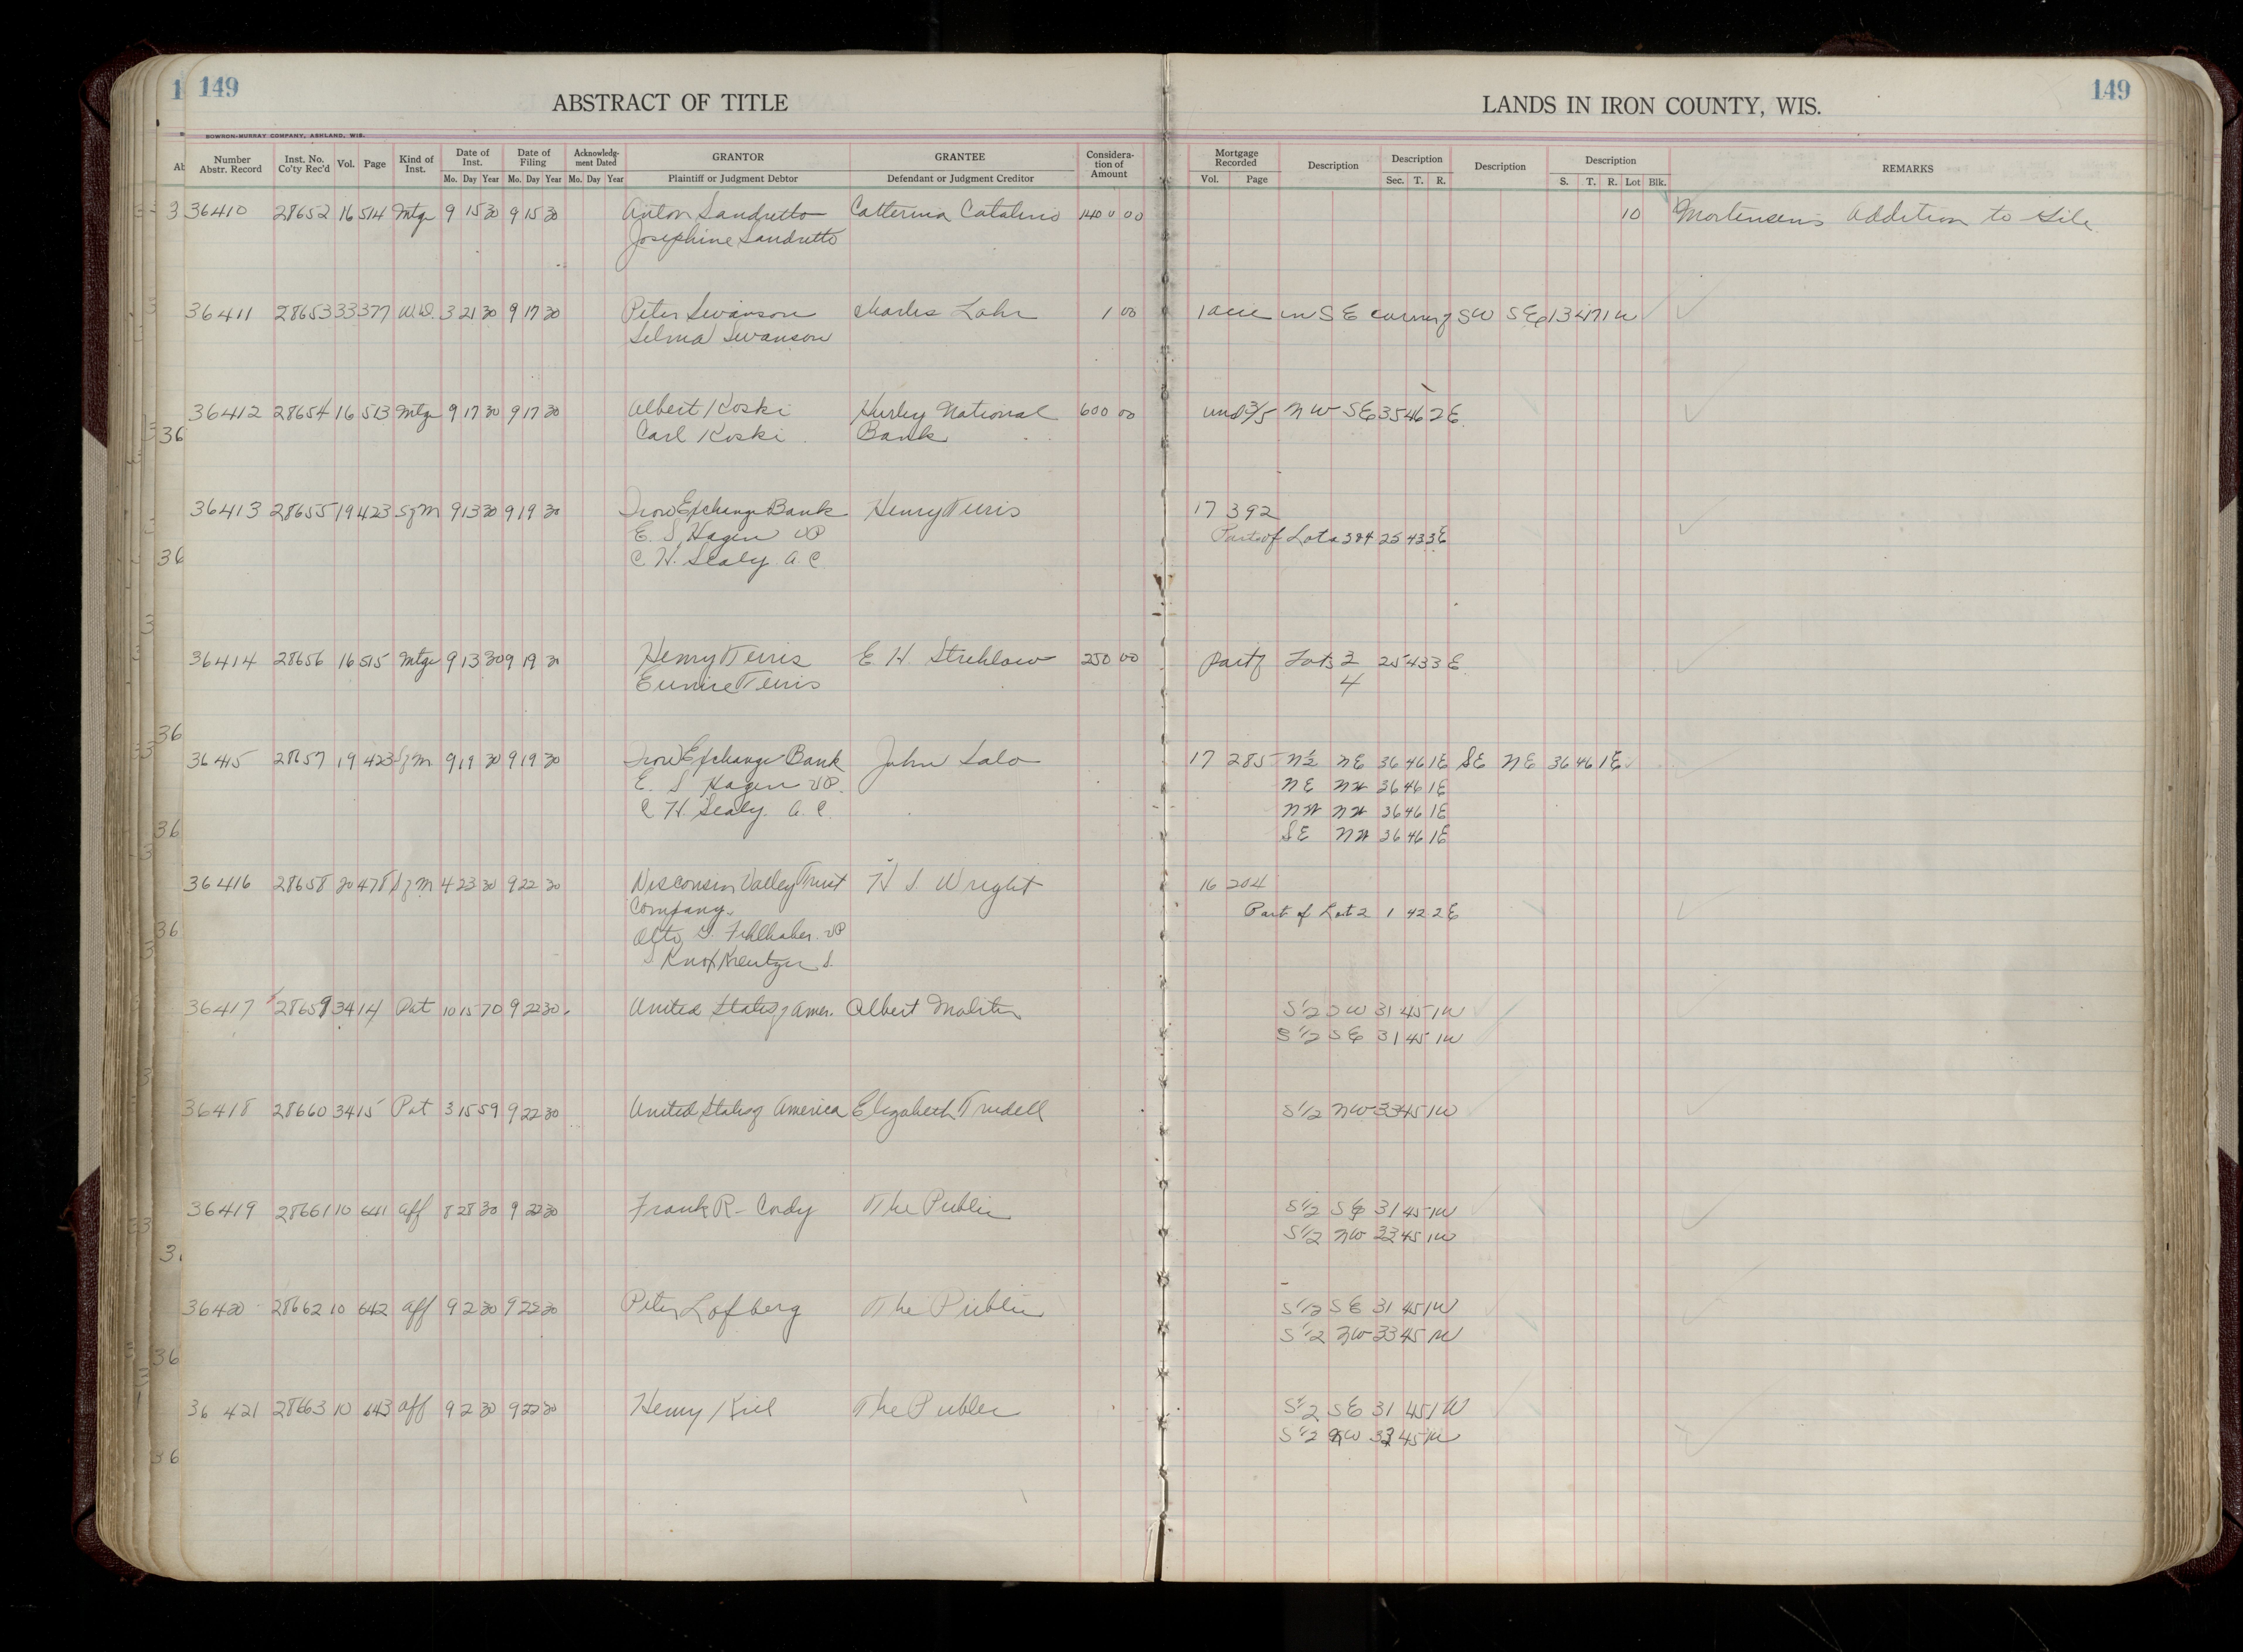 149
ABSTRACT OF TITLE
LANDS IN IRON COUNTY, WIS.
149
BOWRON-MURRAY COMPANY, ASHLAND, WIS.
Number Abstr. Record Inst. No. Co'ty Rec'd Vol. Page Kind of Inst. Date of Inst. Mo. Day Year Date of Filing Mo. Day Year Acknowledg-ment Dated Mo. Day Year GRANTOR Plaintiff or Judgment Debtor GRANTEE Defendant or Judgment Creditor Considera-tion of Amount Mortgage Recorded Vol. Page Description Description Sec. T. R. Description Description S. T. R. Lot Blk. REMARKS
36410 28652 16 514 Mtge 9 15 30 9 15 30 Anton Sandretto Catterina Catalino 1400 00 10 Mortensen's Addition to Gile
Josephine Sandretto
36411 28653 33 377 W.D. 3 21 30 9 17 30 Peter Swanson Charles Lahr 1 00 1 acre in SE corner of SW SE 13 47 1W
Selma Swanson
36412 28654 16 513 Mtge 9 17 30 9 17 30 Albert Koski Hurley National 600 00 und 3/5 NW SE 35 46 2E
Carl Koski Bank
36413 28655 19 423 S of M 9 13 30 9 19 30 Iron Exchange Bank Henry Ferris 17 392
E. S. Hagen VP Part of Lots 3&4 25 43 3E
C H. Sealy A. C.
36414 28656 16 515 Mtge 9 13 30 9 19 30 Henry Ferris E H Strehlow 250 00 Part of Lots 3 25 43 3E
Eunice Ferris 4
36415 28657 19 423 S of M 9 19 30 9 19 30 Iron Exchange Bank John Salo 17 285 N½ NE 36 46 1E SE NE 36 46 1E
E. S Hagen VP. NE NW 36 46 1E
C H. Sealy. A. C. NW NW 36 46 1E
SE NW 36 46 1E
36416 28658 20 478 S of M 4 23 30 9 22 30 Wisconsin Valley Trust H S Wright 16 204
Company Part of Lot 2 1 42 2E
Otto G. Fehlhaber. VP
S Knox Kreutzer S.
36417 28659 34 14 Pat 10 15 70 9 22 30 United States of Amer. Albert Molitor S 1/2 SW 31 45 1W
S 1/2 SE 31 45 1W
36418 28660 34 15 Pat 3 15 59 9 22 30 United States of America Elizabeth Trudell S 1/2 NW 33 45 1W
36419 28661 10 641 Aff 8 28 30 9 22 30 Frank R- Cordy The Public S 1/2 SE 31 45 1W
S 1/2 NW 33 45 1W
36420 28662 10 642 Aff 9 2 30 9 22 30 Peter Lofberg The Public S 1/2 SE 31 45 1W
S 1/2 NW 33 45 1W
36 421 28663 10 643 Aff 9 2 30 9 22 30 Henry Kiel The Public S 1/2 SE 31 45 1W
S 1/2 NW 33 45 1W